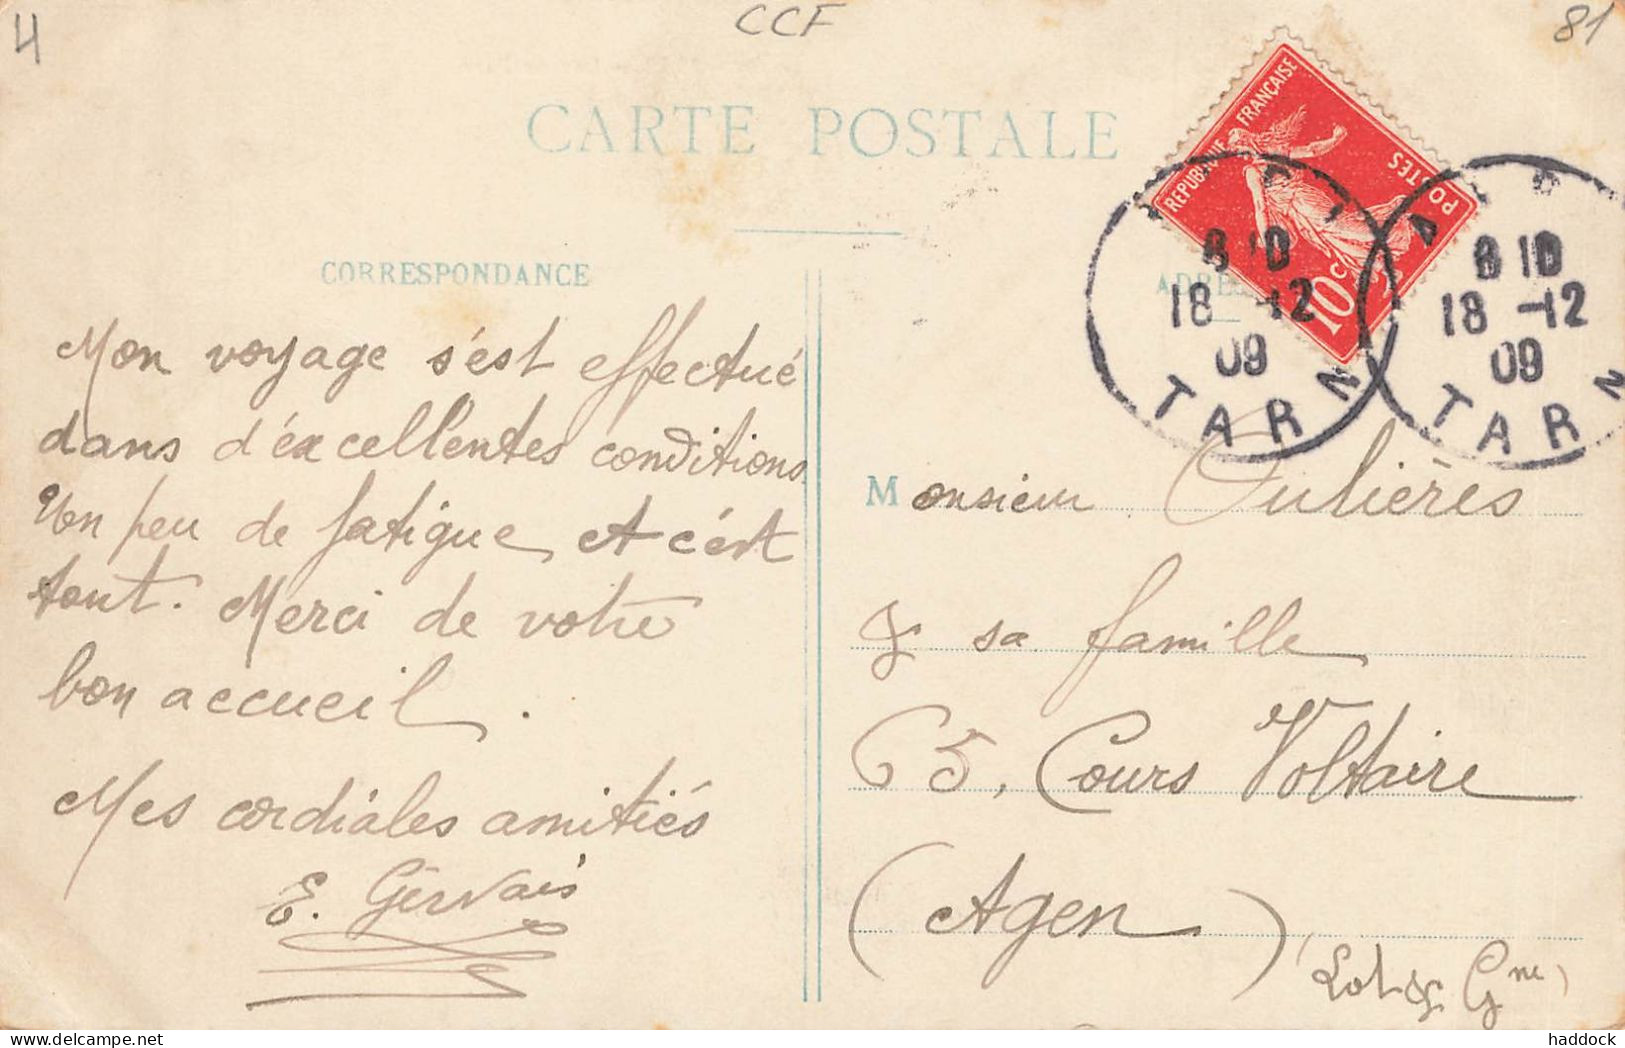 4
CCF
81
CARTE POSTALE
REPUBLIQUE FRANÇAISE
POSTES
10c
8 10
18 -12
09
TARN
8 10
18 -12
09
TARN
CORRESPONDANCE
Mon voyage s'est effectué
dans d'éxcellentes conditions.
Un peu de fatigue et c'est
tout. Merci de votre
bon accueil.
Mes cordiales amitiés
E. Gervais
Monsieur Oulières
& sa famille
65, Cours Voltaire
(Agen)
(Lot & Gne)
haddock